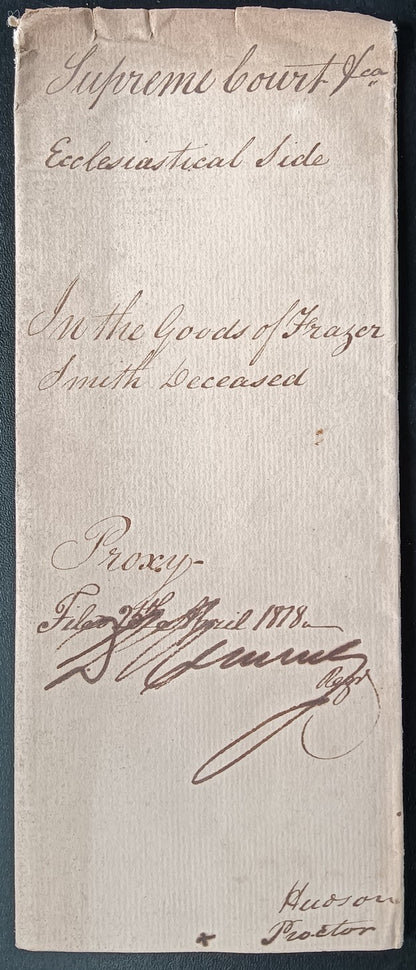 Supreme Court &ca
Ecclesiastical Side
In the Goods of Frazer
Smith Deceased
Proxy
Filed April 1818
Regr
Hudson
Proctor